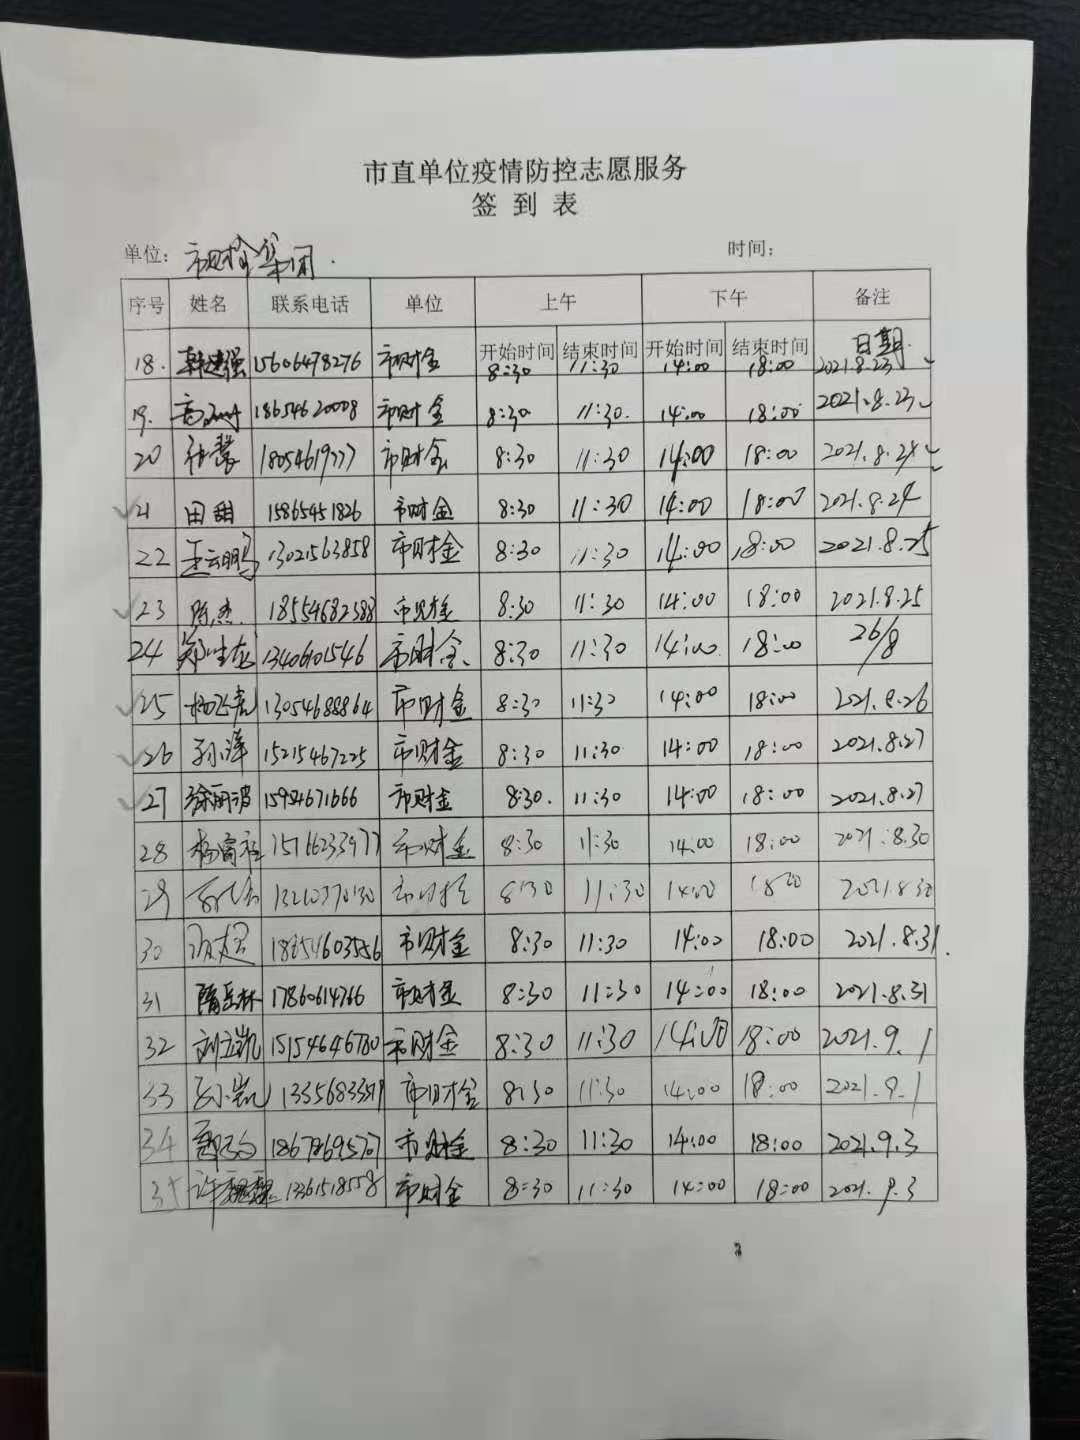 市直单位疫情防控志愿服务
签到表
单位：市财金集团. 时间：
序号 姓名 联系电话 单位 上午 下午 备注
开始时间 结束时间 开始时间 结束时间 日期.
18. 韩建强 15606478276 市财金 8:30 11:30 14:00 18:00 2021.8.23
19. 18654620008 市财金 8:30 11:30. 14:00 18:00 2021.8.23
20 张慧 18054619777 市财金 8:30 11:30 14:00 18:00 2021.8.24
21 田甜 15865451826 市财金 8:30 11:30 14:00 18:00 2021.8.24
22 王云鹏 13021563858 市财金 8:30 11:30 14:00 18:00 2021.8.25
23 陈杰. 18554682388 市财金 8:30 11:30 14:00 18:00 2021.8.25
24 13406101546 市财金 8:30 11:30 14:00 18:00 26/8
25 13054688864 市财金 8:30 11:30 14:00 18:00 2021.8.26
26 孙洋 15215467225 市财金 8:30 11:30 14:00 18:00 2021.8.27
27 徐丽波 15954671666 市财金 8:30. 11:30 14:00 18:00 2021.8.27
28 15166233977 市财金 8:30 11:30 14:00 18:00 2021.8.30
29 13210370130 市财金 8:30 11:30 14:00 18:00 2021.8.30
30 18854603556 市财金 8:30 11:30 14:00 18:00 2021.8.31.
31 隋岳林 17860614766 市财金 8:30 11:30 14:00 18:00 2021.8.31
32 刘立凯 15154646780 市财金 8:30 11:30 14:00 18:00 2021.9.1
33 孙小岩 市财金 8:30 11:30 14:00 18:00 2021.9.1
34 18678695707 市财金 8:30 11:30 14:00 18:00 2021.9.3
35 许巍巍 13361518558 市财金 8:30 11:30 14:00 18:00 2021.9.3